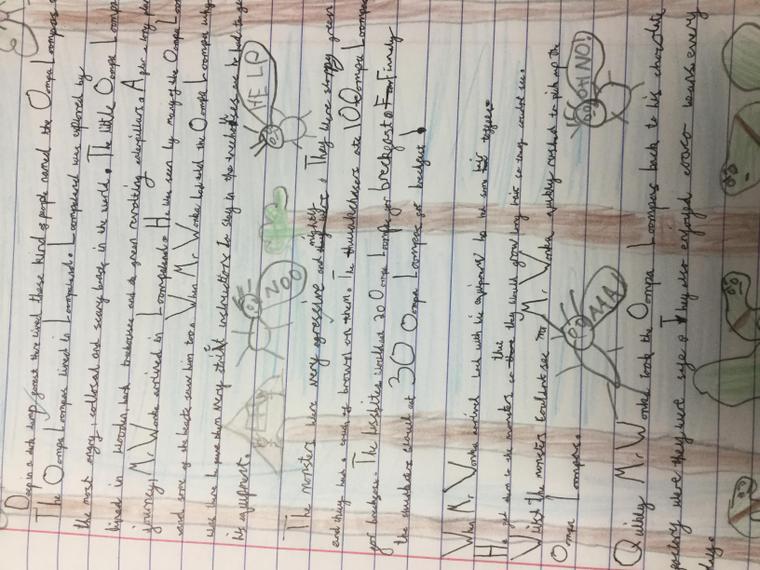 Deep in a dark damp forest there lived these kind of people named the Oompa Loompas
The Oompa Loompas lived in Loompaland. Loompaland was explored by
the most angry, colossal and scary beasts in the world. The little Oompa Loompas
lived in wooden, bark treehouses and ate green revolting caterpillars. After a long
journey, Mr Wonka arrived in Loompaland. He was seen by many of the Oompa
and some of the beasts saw him too. When Mr Wonka had told the Oompa Loompas why
was there he gave them very strict instructions to stay in the treehouses as he had to
his equipment.
HELP
NOO
The monsters were very agressive and mighty. They were sloppy green
and they had a coat of brown on them. The ate 10 Oompa
for breakfast. The would eat 20 Oompa Loompas for breakfast. Finnaly
the at 30 Oompa Loompas for breakfast!
When Mr Wonka arrived back with his equipment he had some hair toffees.
He got them to the monsters so they would grow long hair so they couldnt see.
Whilst the monsters couldnt see Mr Wonka quickly rushed to pick up the
Oompa Loompas.
OH NO!
AAA!
Quikley Mr Wonka took the Oompa Loompas back to his chocolate
factory were they were safe. They also enjoyed cocoa beans every
day.